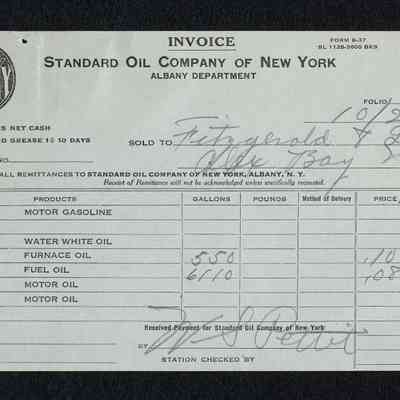 INVOICE
FORM B-37
STANDARD OIL COMPANY OF NEW YORK
ALBANY DEPARTMENT
FOLIO
10/2
S NET CASH
D GREASE 1% 10 DAYS
SOLD TO Fitzgerald &
NO.
Alex Bay
ALL REMITTANCES TO STANDARD OIL COMPANY OF NEW YORK, ALBANY, N. Y.
Receipt of Remittance will not be acknowledged unless specifically requested.
PRODUCTS GALLONS POUNDS Method of Delivery PRICE
MOTOR GASOLINE
WATER WHITE OIL
FURNACE OIL 550 .10
FUEL OIL 6110 .08
MOTOR OIL
MOTOR OIL
Received Payment for Standard Oil Company of New York
BY W S Pettit
STATION CHECKED BY